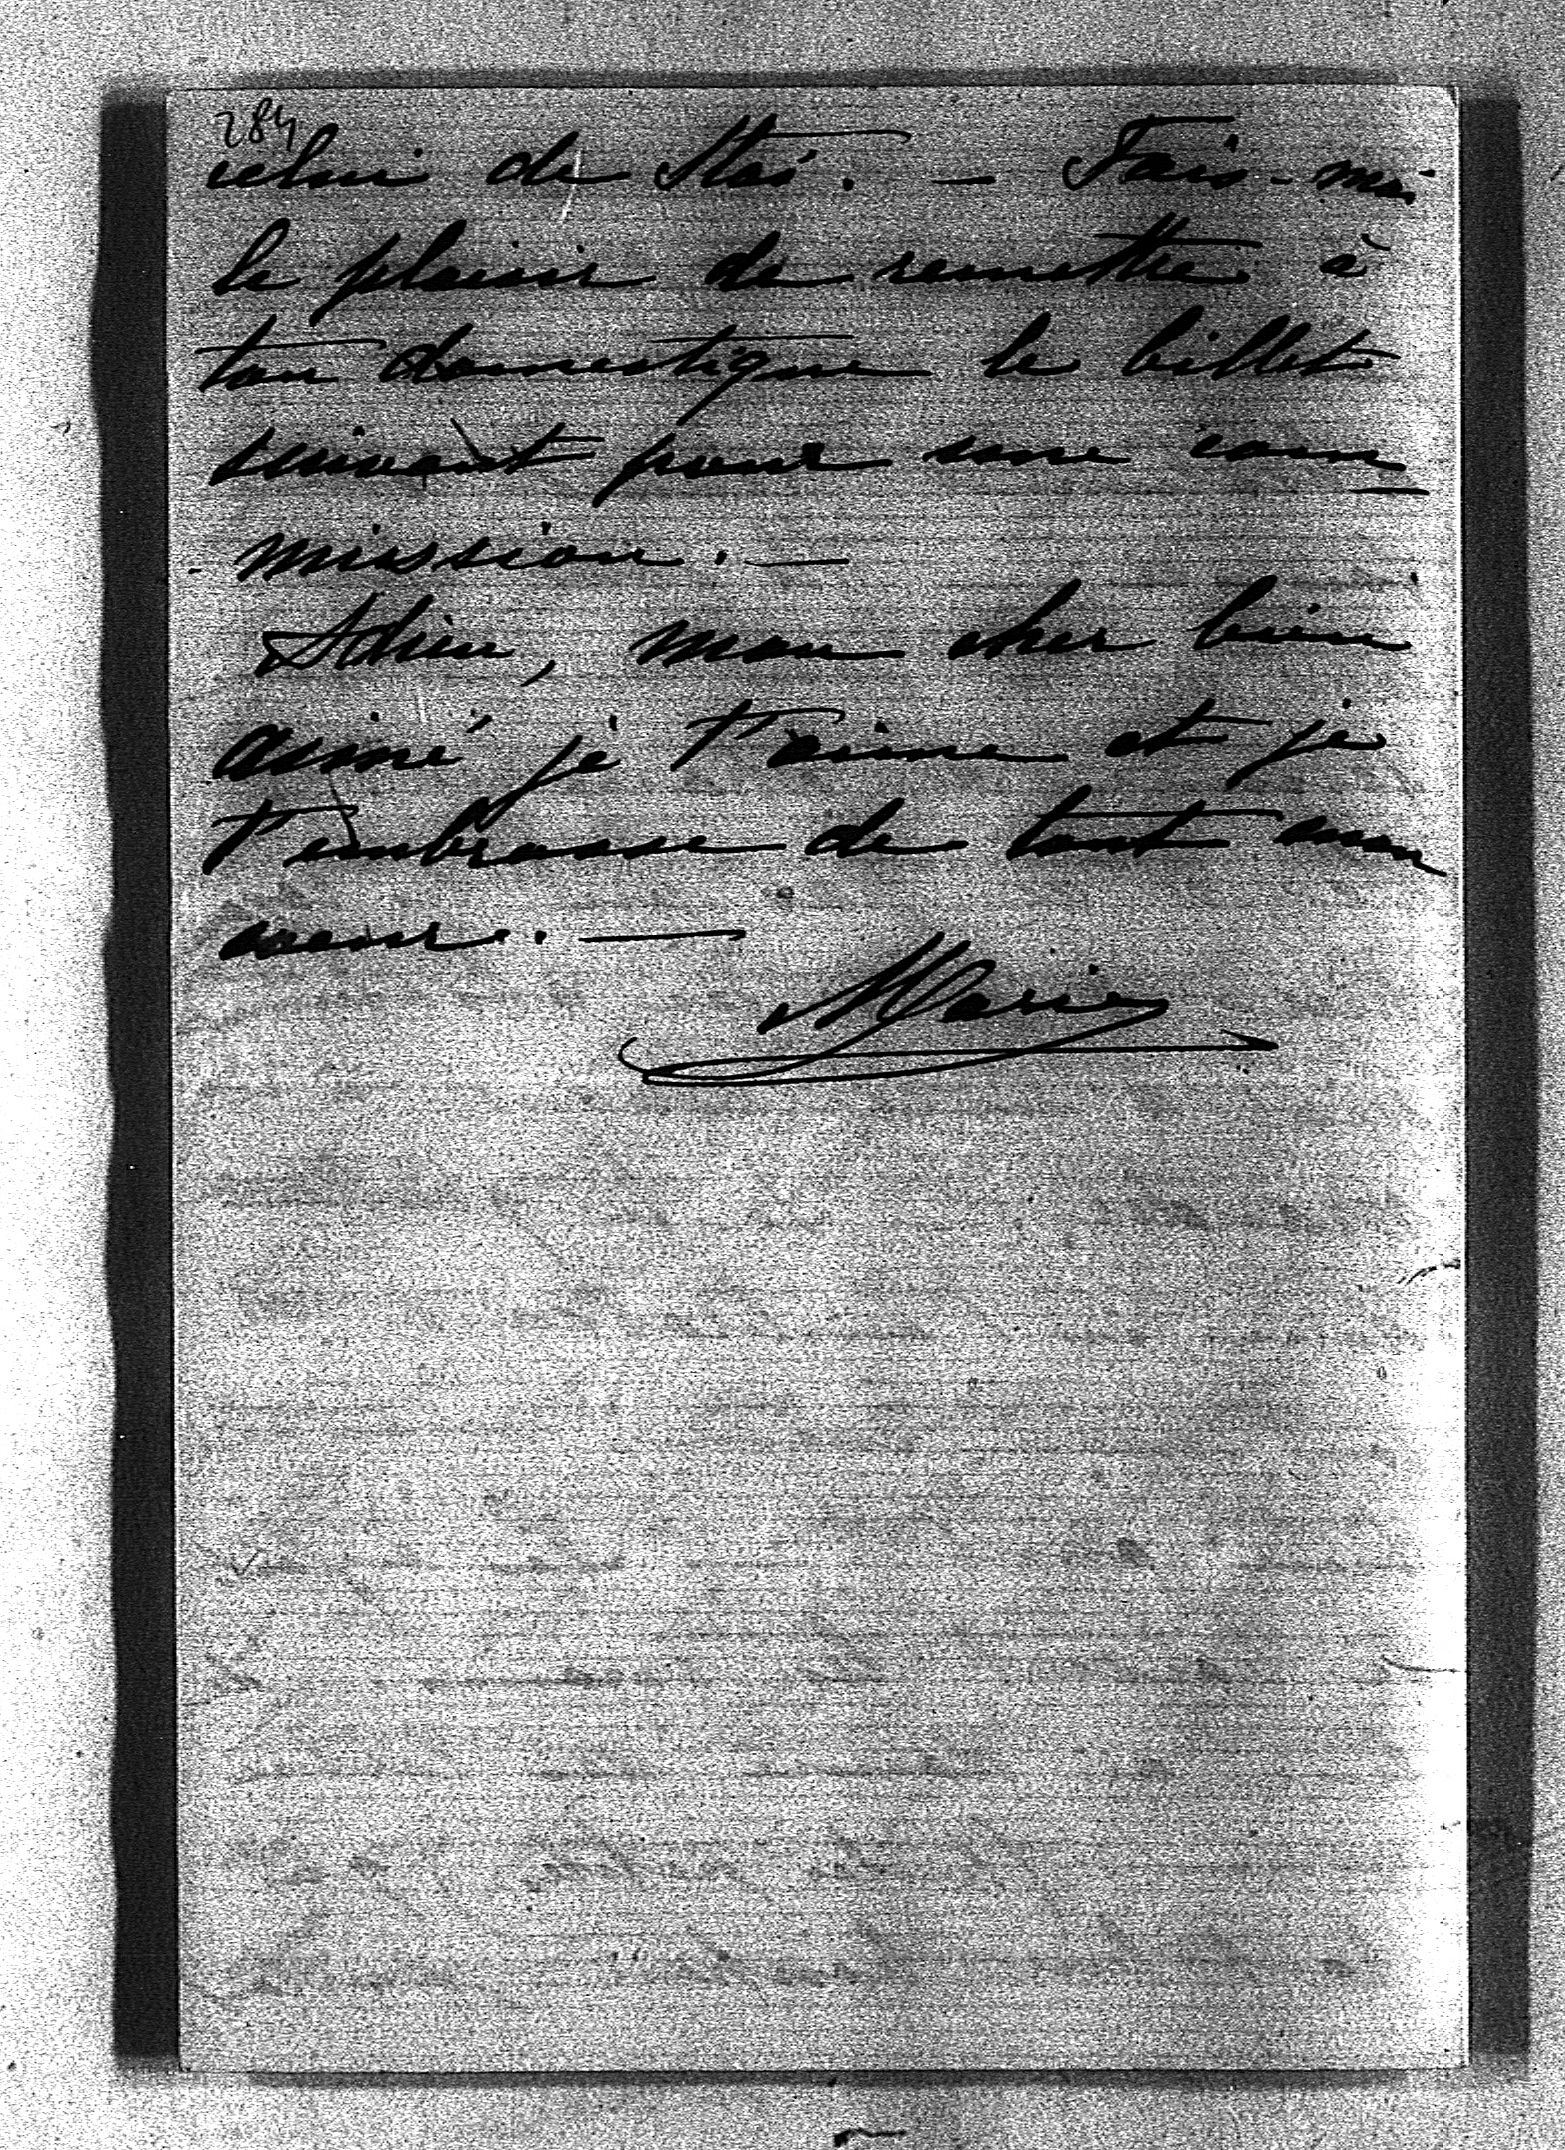 284
celui de Stas. — Fais-moi
le plaisir de remettre à
ton domestique le billet
suivant pour une com
- mission. —
Adieu, mon cher bien
aimé je t'aime et je
t'embrasse de tout mon
coeur. —
Marie